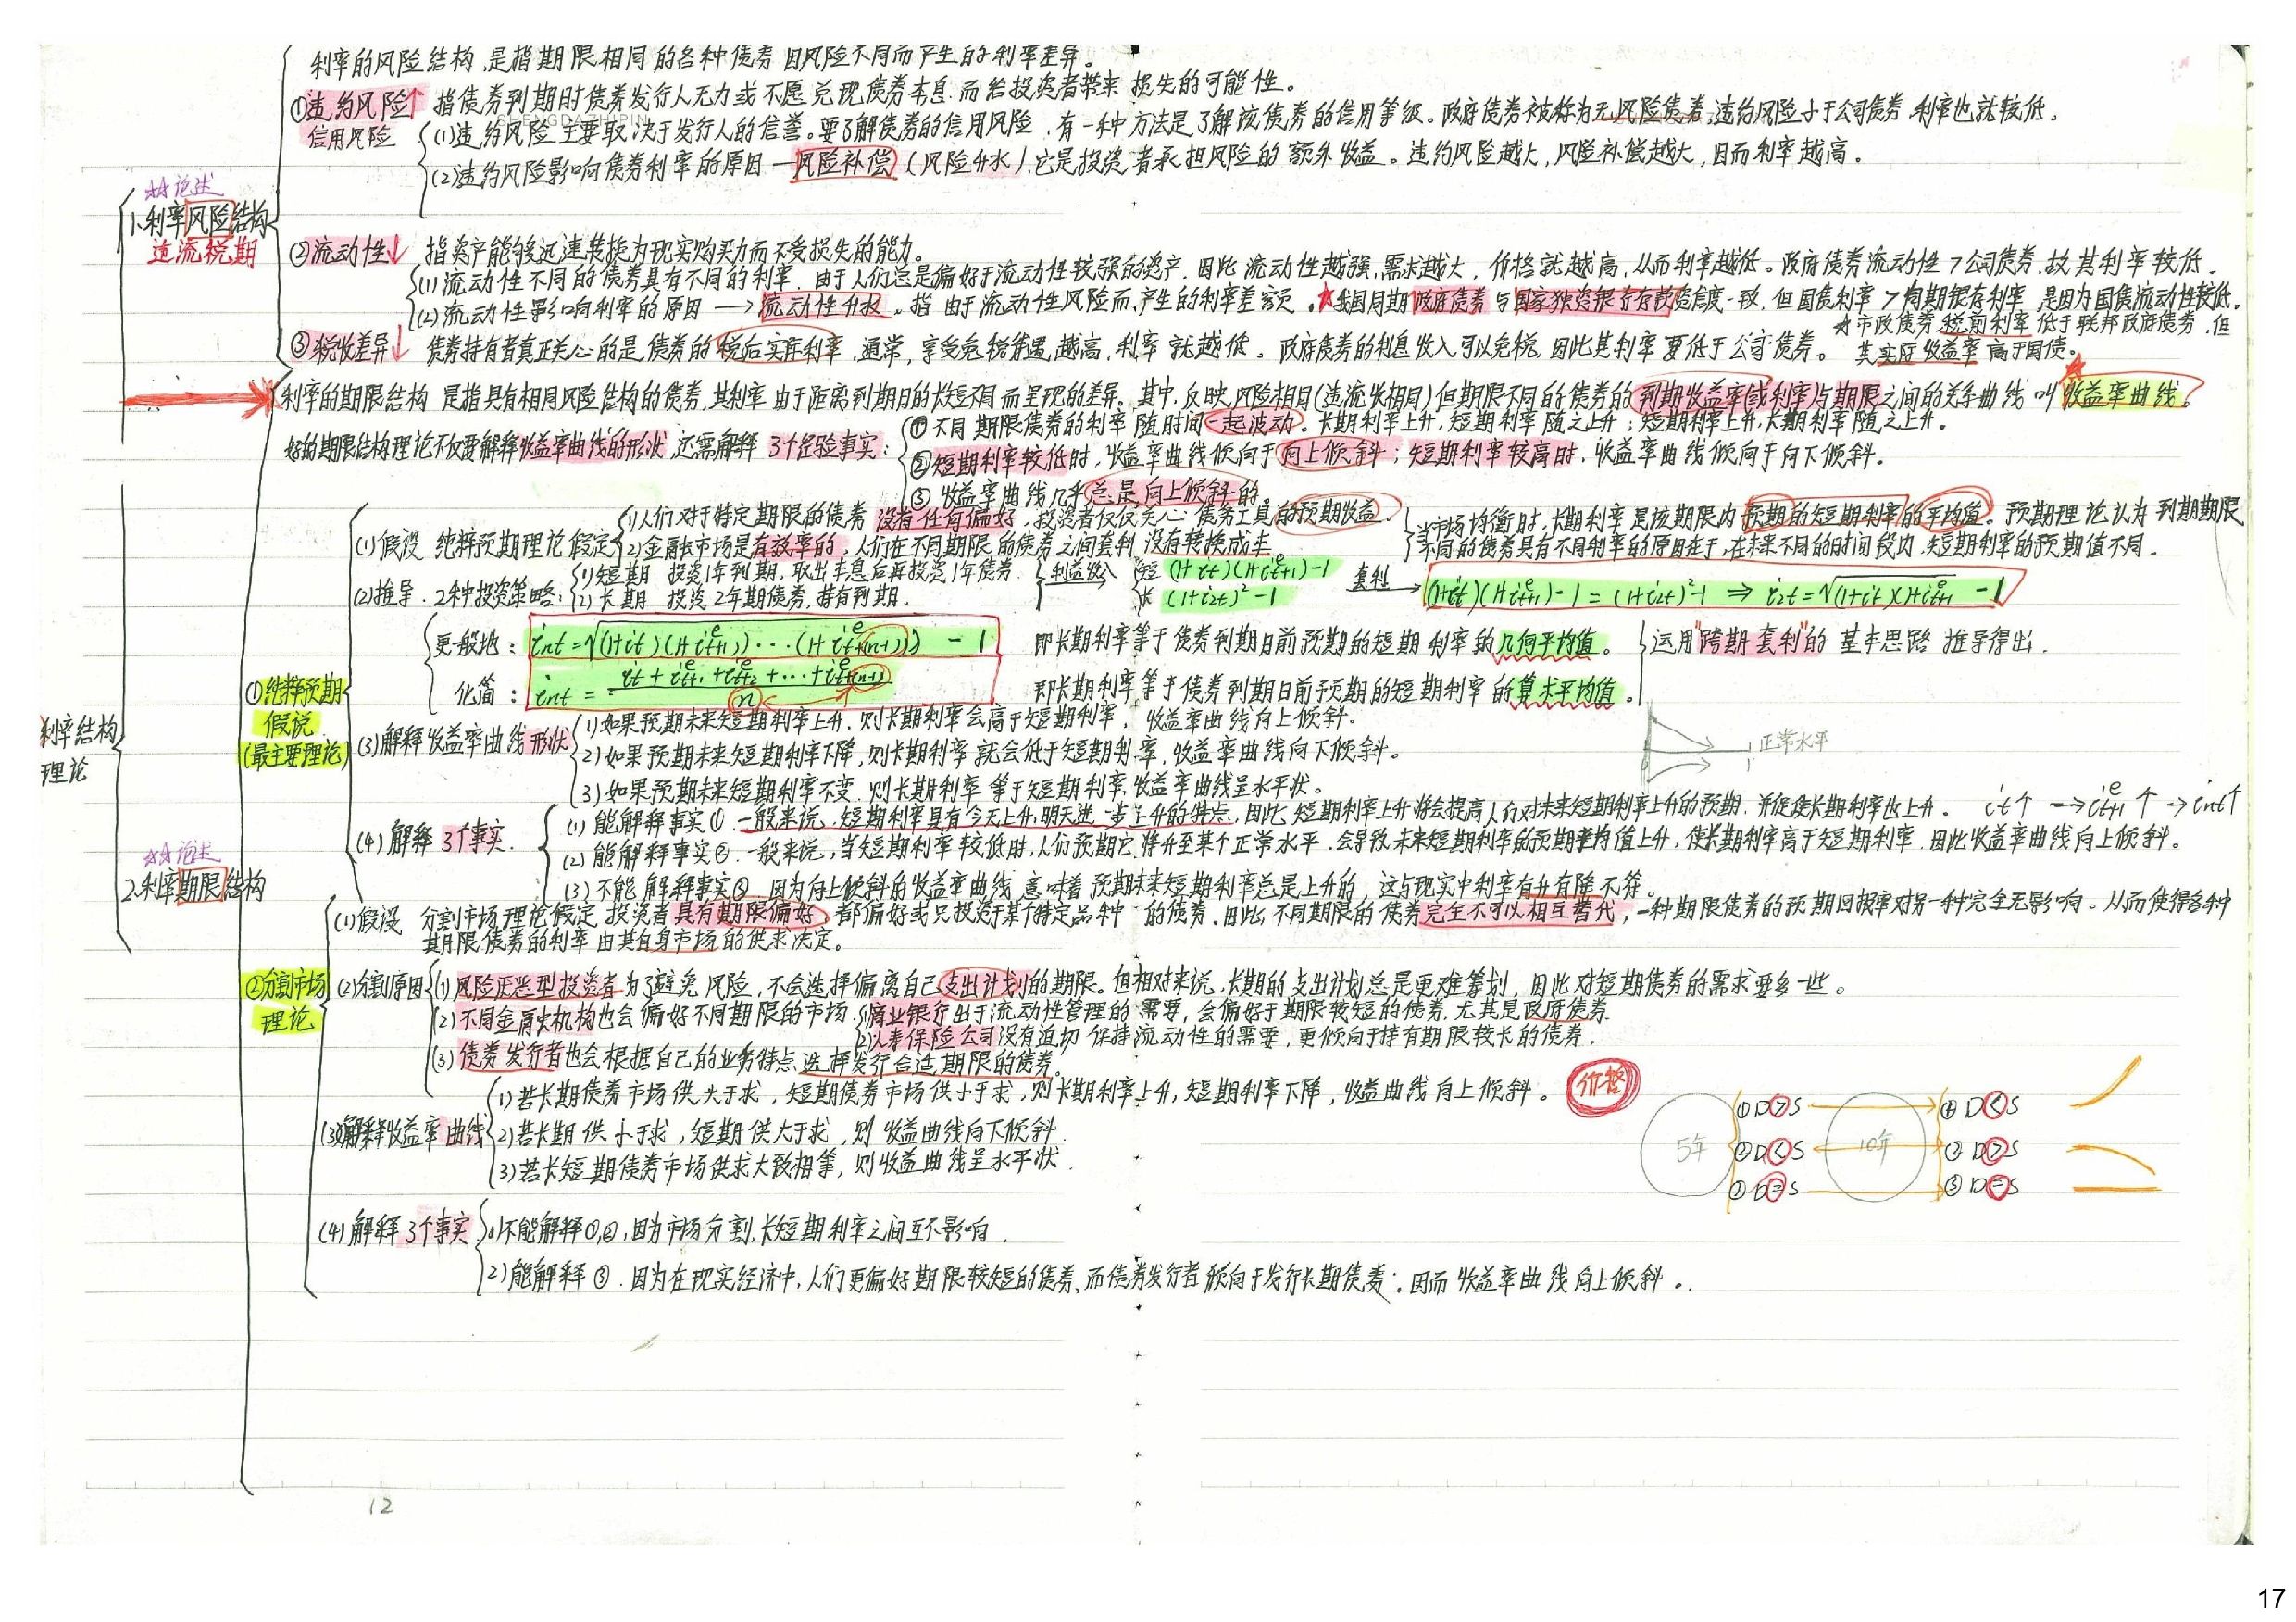 利率的风险结构 是指期限相同的各种债券因风险不同而产生的利率差异。
①违约风险↑ 指债券到期时债券发行人无力或不愿兑现债券本息而给投资者带来损失的可能性。
SHENGDAZHIPIN
信用风险 (1)违约风险主要取决于发行人的信誉。要了解债券的信用风险,有一种方法是了解该债券的信用等级。政府债券被称为无风险债券,违约风险小于公司债券,利率也就较低。
(2)违约风险影响债券利率的原因—风险补偿(风险升水),它是投资者承担风险的额外收益。违约风险越大,风险补偿越大,因而利率越高。
☆☆论述
1.利率风险结构
违流税期
②流动性↓ 指资产能够迅速转换为现实购买力而不受损失的能力。
(1)流动性不同的债券具有不同的利率.由于人们总是偏好于流动性较强的资产,因此流动性越强,需求越大,价格就越高,从而利率越低。政府债券流动性>公司债券,故其利率较低.
(2)流动性影响利率的原因→流动性升水。指由于流动性风险而产生的利率差额。★我国同期政府债券与国家独资银行存款资信度一致,但国债利率>同期银存利率 是因为国债流动性较低。
☆市政债券税前利率低于联邦政府债券,但
③税收差异↓ 债券持有者真正关心的是债券的税后实际利率,通常,享受免税待遇越高,利率就越低。政府债券的利息收入可以免税,因此其利率要低于公司债券。 其实际收益率高于国债。
利率的期限结构 是指具有相同风险结构的债券,其利率由于距离到期日的长短不同而呈现的差异。其中,反映风险相同(违流税相同)但期限不同的债券的到期收益率(或利率)与期限之间的关系曲线叫收益率曲线。
①不同期限债券的利率随时间一起波动。长期利率上升,短期利率随之上升;短期利率上升,长期利率随之上升。
好的期限结构理论不仅要解释收益率曲线的形状,还需解释3个经验事实:②短期利率较低时,收益率曲线倾向于向上倾斜;短期利率较高时,收益率曲线倾向于向下倾斜。
③收益率曲线几乎总是向上倾斜的
(1)假设 纯粹预期理论假定 1)人们对于特定期限的债券没有任何偏好,投资者仅仅关心债务工具的预期收益.
2)金融市场是有效率的,人们在不同期限的债券之间套利,没有转换成本
当市场均衡时,长期利率是该期限内预期的短期利率的平均值。预期理论认为到期期限
不同的债券具有不同利率的原因在于,在未来不同的时间段内,短期利率的预期值不同.
(2)推导.2种投资策略: 1)短期 投资1年到期,取出本息后再投资1年债券.
2)长期 投资2年期债券,持有到期.
利益收入 短 (1+it)(1+iᵉt+1)-1
长 (1+i2t)²-1
套利→ (1+it)(1+iᵉt+1)-1=(1+i2t)²-1 ⇒ i2t=√(1+it)(1+iᵉt+1) -1
更一般地: int=ⁿ√(1+it)(1+iᵉt+1)···(1+iᵉt+(n-1)) -1 即长期利率等于债券到期日前预期的短期利率的几何平均值。 运用"跨期套利"的基本思路推导得出.
化简: int = (it+iᵉt+1+iᵉt+2+···+iᵉt+(n-1))/n 即长期利率等于债券到期日前预期的短期利率的算术平均值.
①纯粹预期
假说
(最主要理论)
利率结构
理论
(3)解释收益率曲线形状 1)如果预期未来短期利率上升,则长期利率会高于短期利率,收益率曲线向上倾斜.
2)如果预期未来短期利率下降,则长期利率就会低于短期利率,收益率曲线向下倾斜。
(3)如果预期未来短期利率不变,则长期利率等于短期利率,收益率曲线呈水平状。
正常水平
(4)解释3个事实. (1)能解释事实①.一般来说,短期利率具有今天上升,明天进一步上升的特点,因此短期利率上升将会提高人们对未来短期利率上升的预期,并促使长期利率也上升. it↑→iᵉt+1↑→int↑
(2)能解释事实②.一般来说,当短期利率较低时,人们预期它将升至某个正常水平,会导致未来短期利率的预期平均值上升,使长期利率高于短期利率,因此收益率曲线向上倾斜。
(3)不能解释事实③.因为向上倾斜的收益率曲线意味着预期未来短期利率总是上升的,这与现实中利率有升有降不符。
☆☆论述
2.利率期限结构
②分割市场
理论
(1)假设 分割市场理论假定投资者具有期限偏好,都偏好或只投资于某个特定品种的债券.因此,不同期限的债券完全不可以相互替代,一种期限债券的预期回报率对另一种完全无影响。从而使得各种
期限债券的利率由其自身市场的供求决定。
(2)分割原因 (1)风险厌恶型投资者为了避免风险,不会选择偏离自己支出计划的期限。但相对来说,长期的支出计划总是更难筹划,因此对短期债券的需求要多一些。
(2)不同金融机构也会偏好不同期限的市场. 1)商业银行出于流动性管理的需要,会偏好于期限较短的债券,尤其是政府债券.
2)人寿保险公司没有迫切保持流动性的需要,更倾向于持有期限较长的债券.
(3)债券发行者也会根据自己的业务特点选择发行合适期限的债券。
(3)解释收益率曲线 1)若长期债券市场供大于求,短期债券市场供小于求,则长期利率上升,短期利率下降,收益曲线向上倾斜。 价格
2)若长期供小于求,短期供大于求,则收益曲线向下倾斜.
3)若长短期债券市场供求大致相等,则收益曲线呈水平状.
5年 ①D>S 10年 ①D<S
②D<S ②D>S
③D=S ③D=S
(4)解释3个事实 1)不能解释①,②,因为市场分割,长短期利率之间互不影响.
2)能解释③.因为在现实经济中,人们更偏好期限较短的债券,而债券发行者倾向于发行长期债券;因而收益率曲线向上倾斜。
12
17